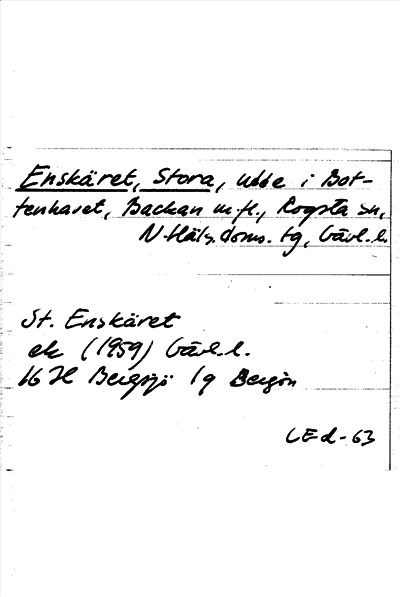 Enskäret, Stora, udde i Bot-
tenhavet, Backan m.fl., Rogsta sn,
N. Häls. doms. tg, Gävl. l.
St. Enskäret
ek (1959) Gävl. l.
16 H Bergsjö 1g Bergön
CEd-63